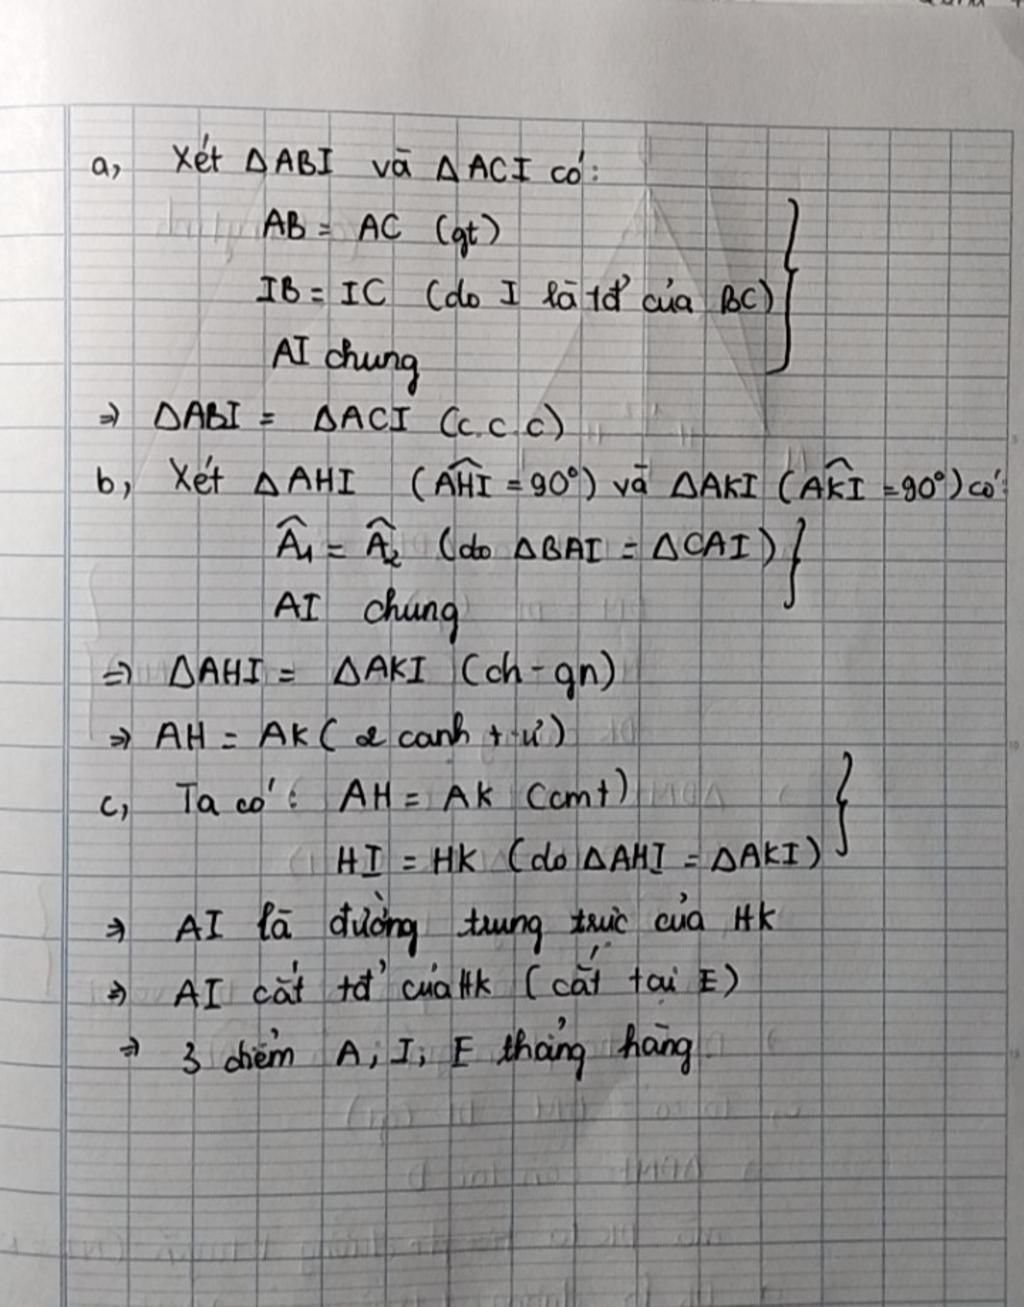 a, Xét ΔABI và ΔACI có:
AB = AC (gt)
IB = IC (do I là tđ' của BC)
AI chung
⇒ ΔABI = ΔACI (c.c.c)
b, Xét ΔAHI (AHI^ = 90°) và ΔAKI (AKI^ = 90°) có:
Â1 = Â2 (do ΔBAI = ΔCAI)
AI chung
⇒ ΔAHI = ΔAKI (ch - gn)
⇒ AH = AK (2 cạnh t.ứ)
c, Ta có: AH = AK (cmt)
HI = HK (do ΔAHI = ΔAKI)
⇒ AI là đường trung trực của HK
⇒ AI cắt tđ' của HK (cắt tại E)
⇒ 3 điểm A, I, E thẳng hàng.